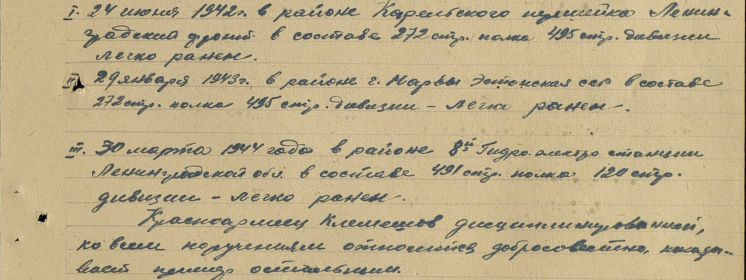 I. 24 июня 1942г. в районе Карельского перешейка Ленин-
градский фронт в составе 272 стр. полка 495 стр. дивизии
легко ранен.
II. 29 января 1943г. в район г. Нарвы Эстонская сср в составе
272 стр. полка 495 стр. дивизии – легко ранен.
III. 30 марта 1944 года в районе 8й Гидро электро станции
Ленинградской обл. в составе 491 стр. полка 120 стр.
дивизии – легко ранен.
Красноармеец Клемешов дисциплинированный,
ко всем поручениям относится добросовестно, показы-
вает пример остальным.